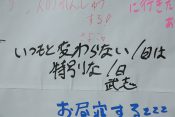 に行きた
する!!
いつもと変わらない1日は
特別な1日
武志
お昼寝するzzz